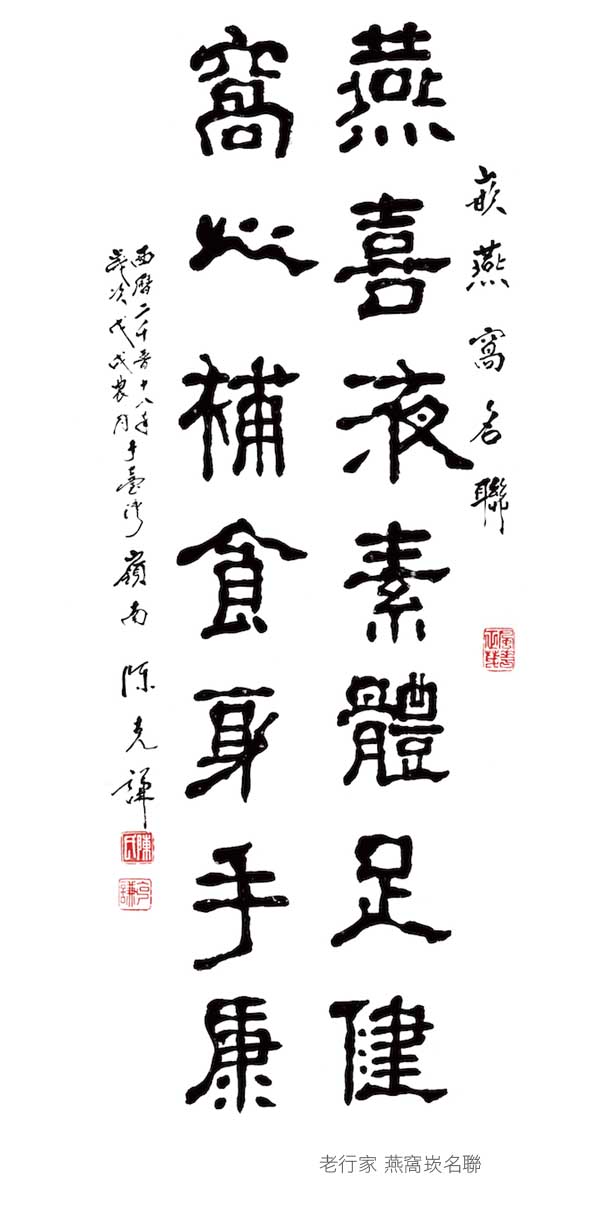 嵌燕窩名聯
燕喜液素體足健
窩心補食身手康
西曆二千十八年
歲次戊戌農月
于臺灣 嶺南 陳克謙
陳氏
老行家 燕窩崁名聯